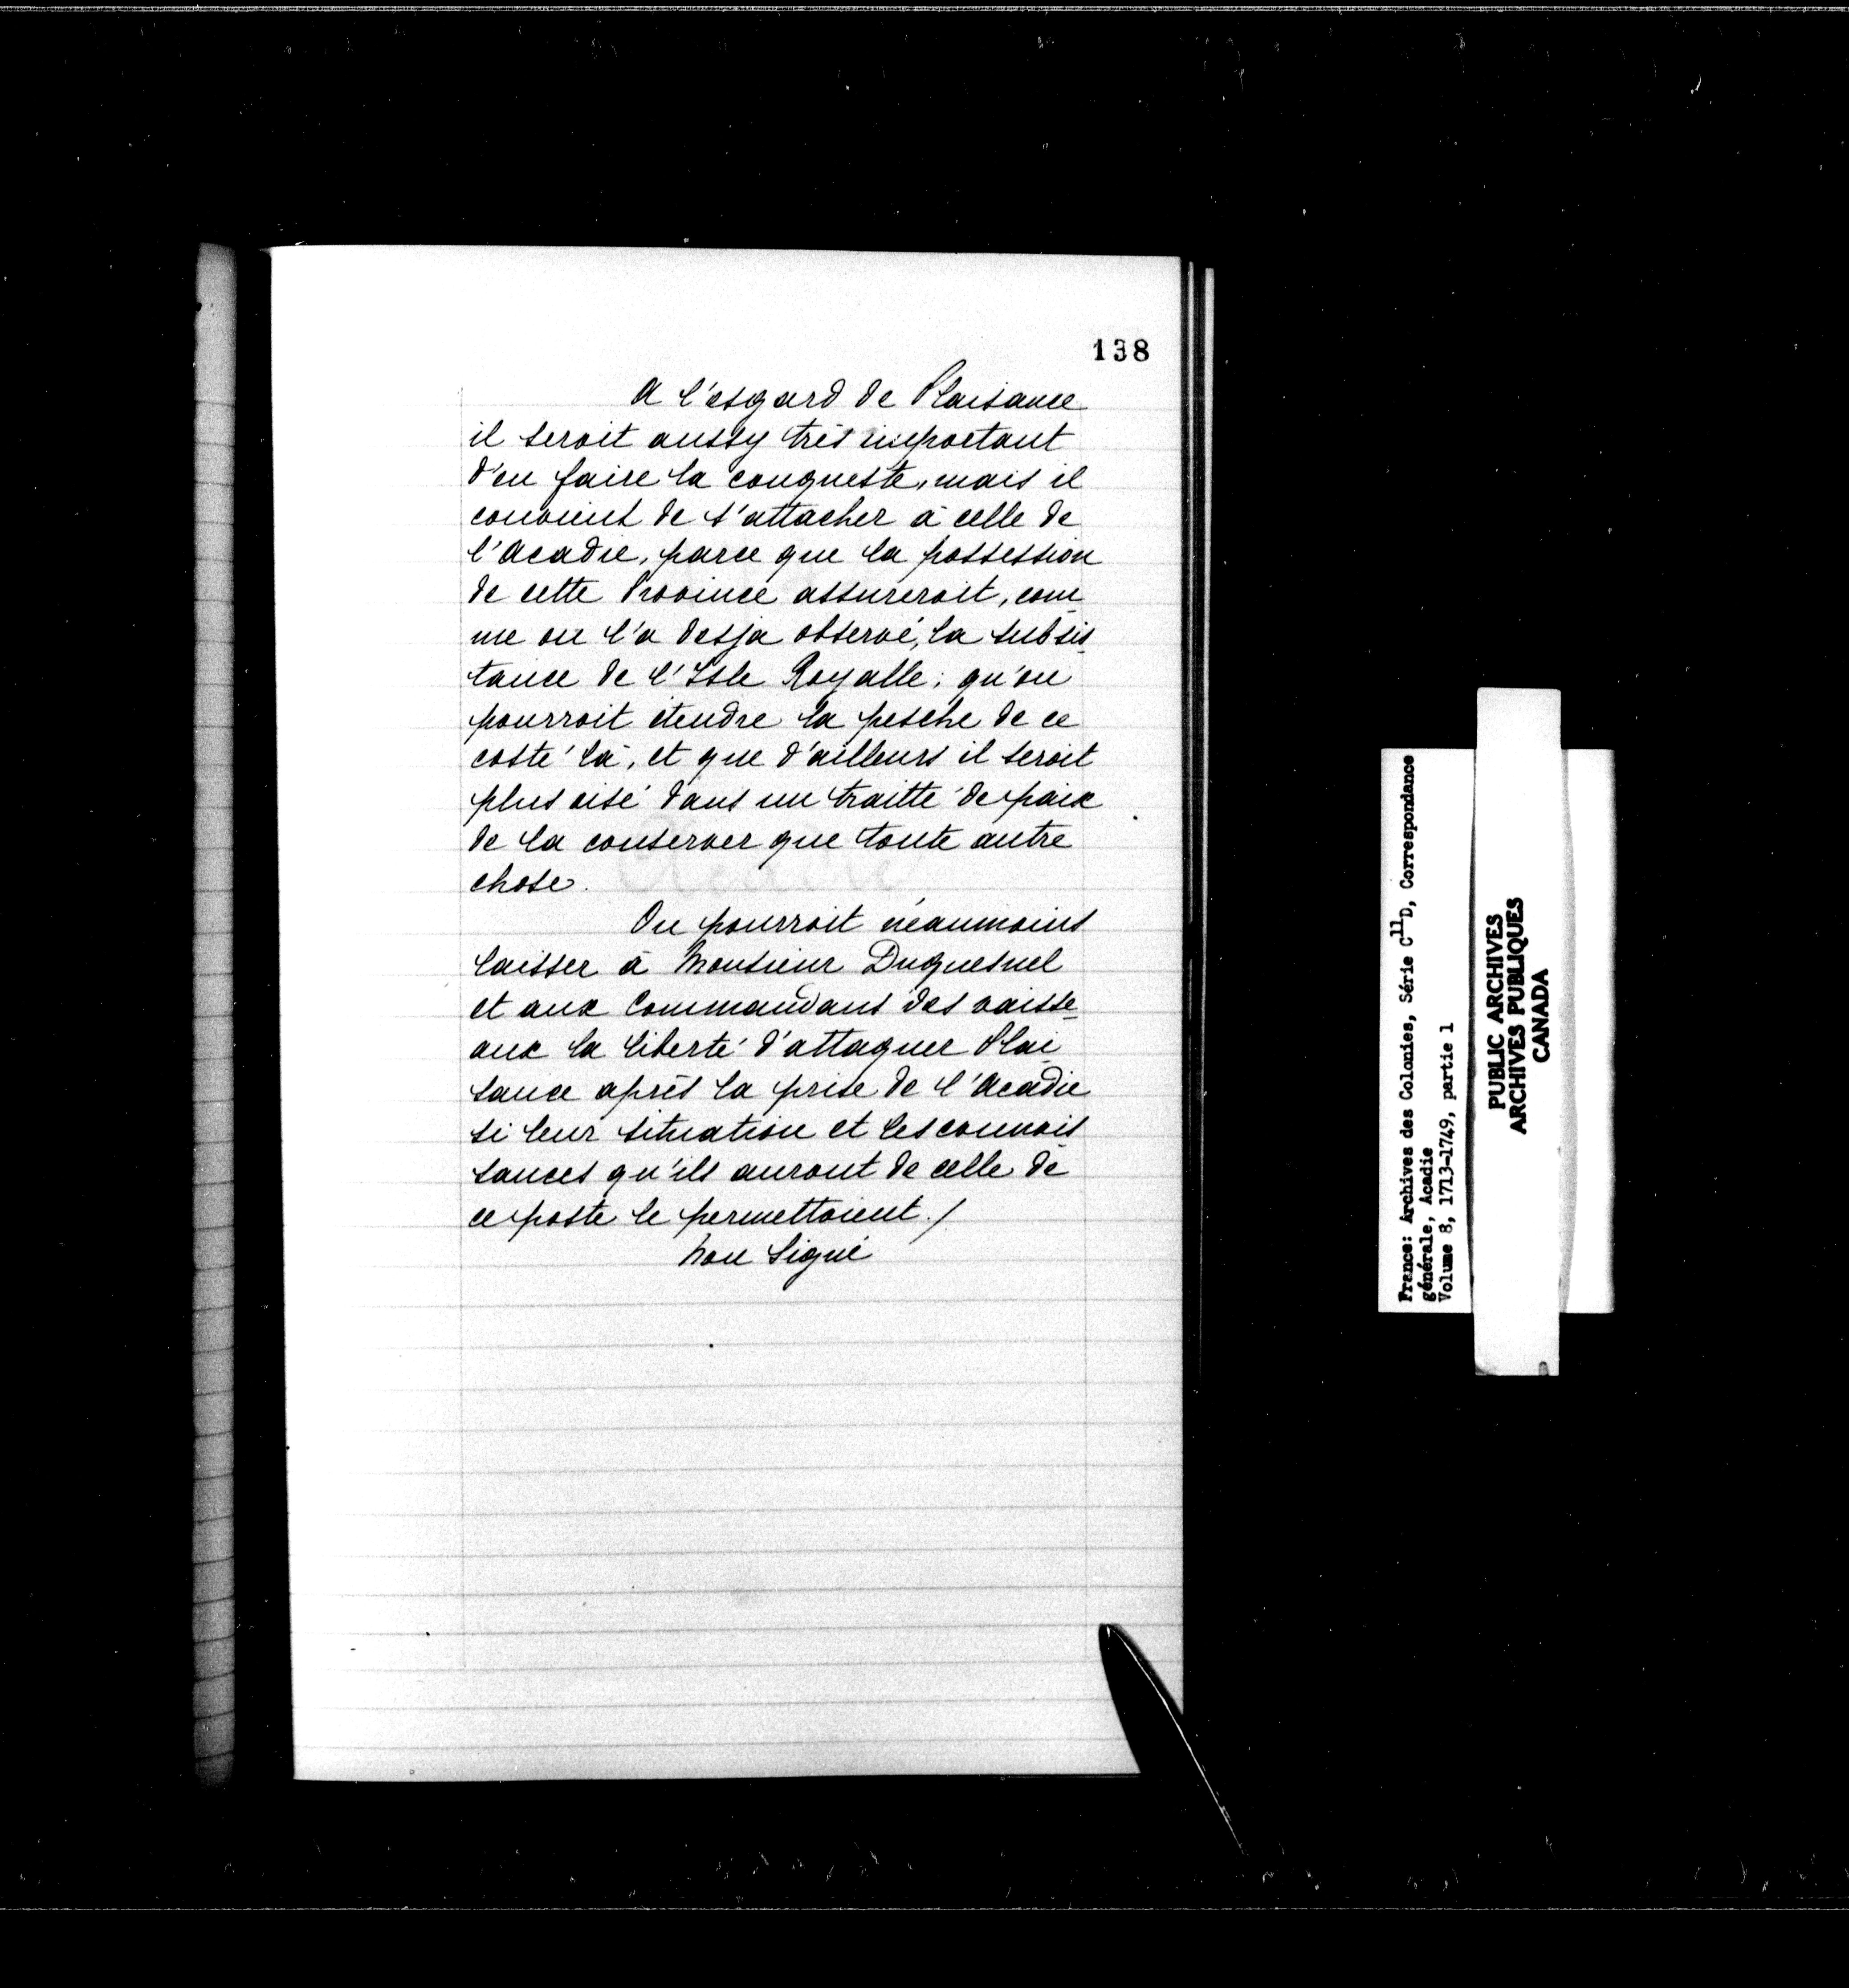 138
A l'esgard de Plaisance
il seroit aussy très important
d'en faire la conqueste, mais il
convient de s'attacher à celle de
l'Acadie, parce que la possession
de cette Province assureroit, com
me on l'a desja observé, la subsis
tance de l'Isle Royalle; qu'on
pourroit étendre la pesche de ce
costé là, et que d'ailleurs il seroit
plus aisé dans un traitté de paix
de la conserver que toute autre
chose.
On pourroit néanmoins
laisser à Monsieur Duquesnel
et aux Commandans des vaisse
aux la liberté d'attaquer Plai
sance après la prise de l'Acadie
si leur situation et les connois
sances qu'ils auront de celle de
ce poste le permettoient./
Non Signé
France: Archives des Colonies, Série C11D, Correspondance
générale, Acadie
Volume 8, 1713-1749, partie 1
PUBLIC ARCHIVES
ARCHIVES PUBLIQUES
CANADA